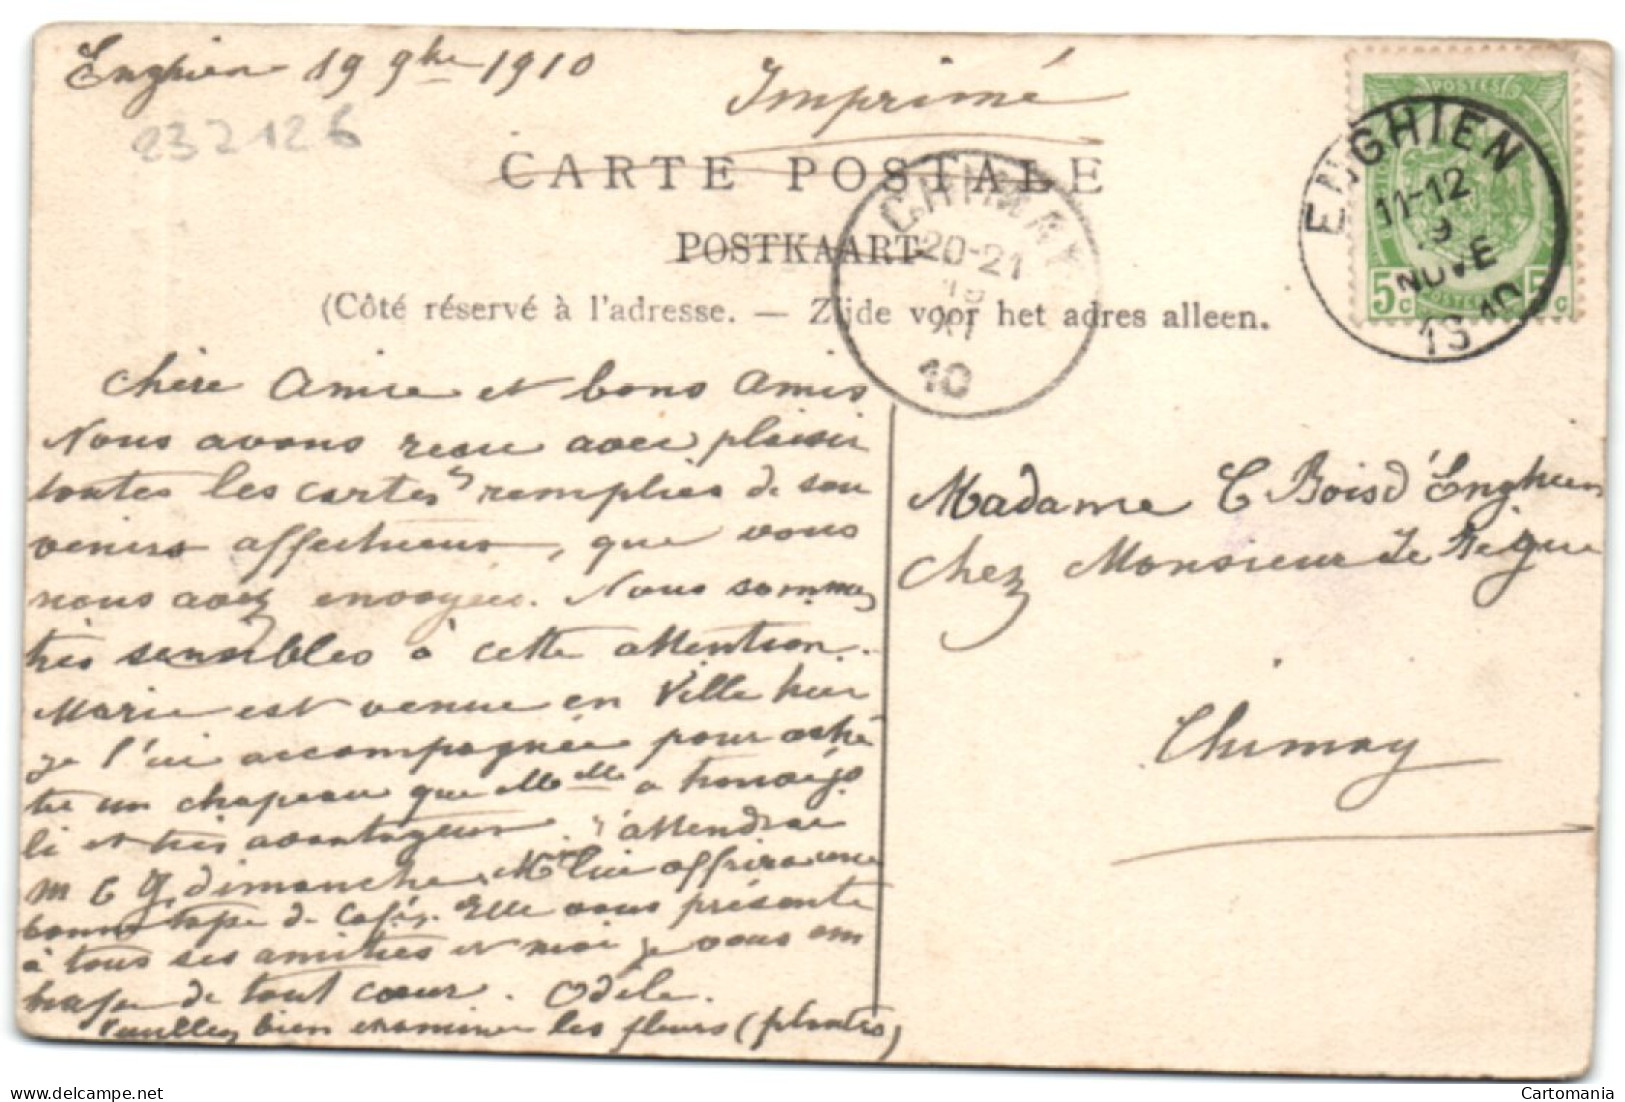 Enghien 19 9bre 1910
Imprimé
232126
CARTE POSTALE
POSTKAART
(Côté réservé à l'adresse. — Zijde voor het adres alleen.
CHIMAY
20-21
19
XI
10
POSTES
ENGHIEN
11-12
19
NOVE
1910
5c 5c
POSTERIJEN
Chère Amie et bons Amis
Nous avons reçu avec plaisir
toutes les cartes remplies de sou
venirs affectueux, que vous
nous avez envoyées. Nous sommes
très sensibles à cette attention.
Marie est venue en Ville hier
je l'ai accompagnée pour ache
ter un chapeau que Melle a trouvé jo
li et très avantageux. J'attendrai
M C G. dimanche, M lui offrira une
bonne tape de Café. Elle vous présente
à tous ses amitiés et moi je vous em
brasse de tout cœur. Odile.
Veuillez bien examiner les fleurs (plantes)
Madame C Bois d'Enghien
chez Monsieur Le Bègue
Chimay
Cartomania